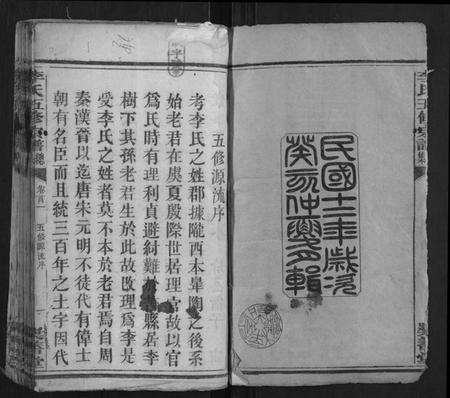 民國十二年歲次
癸亥仲夏多輯
五修源流序
考李氏之姓郡據隴西本臯陶之後系
始老君在虞夏殷際世居理官故以官
爲氏時有理利貞避紂難 縣居李
樹下其孫老君生於此故改理爲李是
受李氏之姓者莫不本於老君焉自周
秦漢晉以迄唐宋元明不徒代有偉士
朝有名臣而且統三百年之土字因代
李氏五修宗譜 卷首 五修源流序
李氏五修宗譜